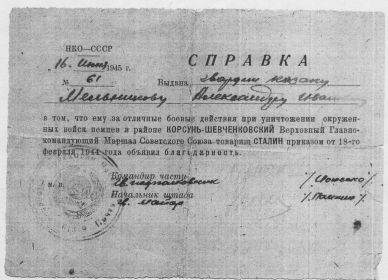 НКО—СССР
СПРАВКА
16 июня 1945 г.
№ 61 Выдана гвардии казаку
Мельникову Александру
в том, что ему за отличные боевые действия при уничтожении окружен-
ных войск немцев в районе КОРСУНЬ-ШЕВЧЕНКОВСКИЙ Верховный Главно-
командующий Маршал Советского Союза товарищ СТАЛИН приказом от 18-го
февраля 1944 года объявил благодарность.
М. П.
Командир части
гв. подполковник
Начальник штаба
гв. майор